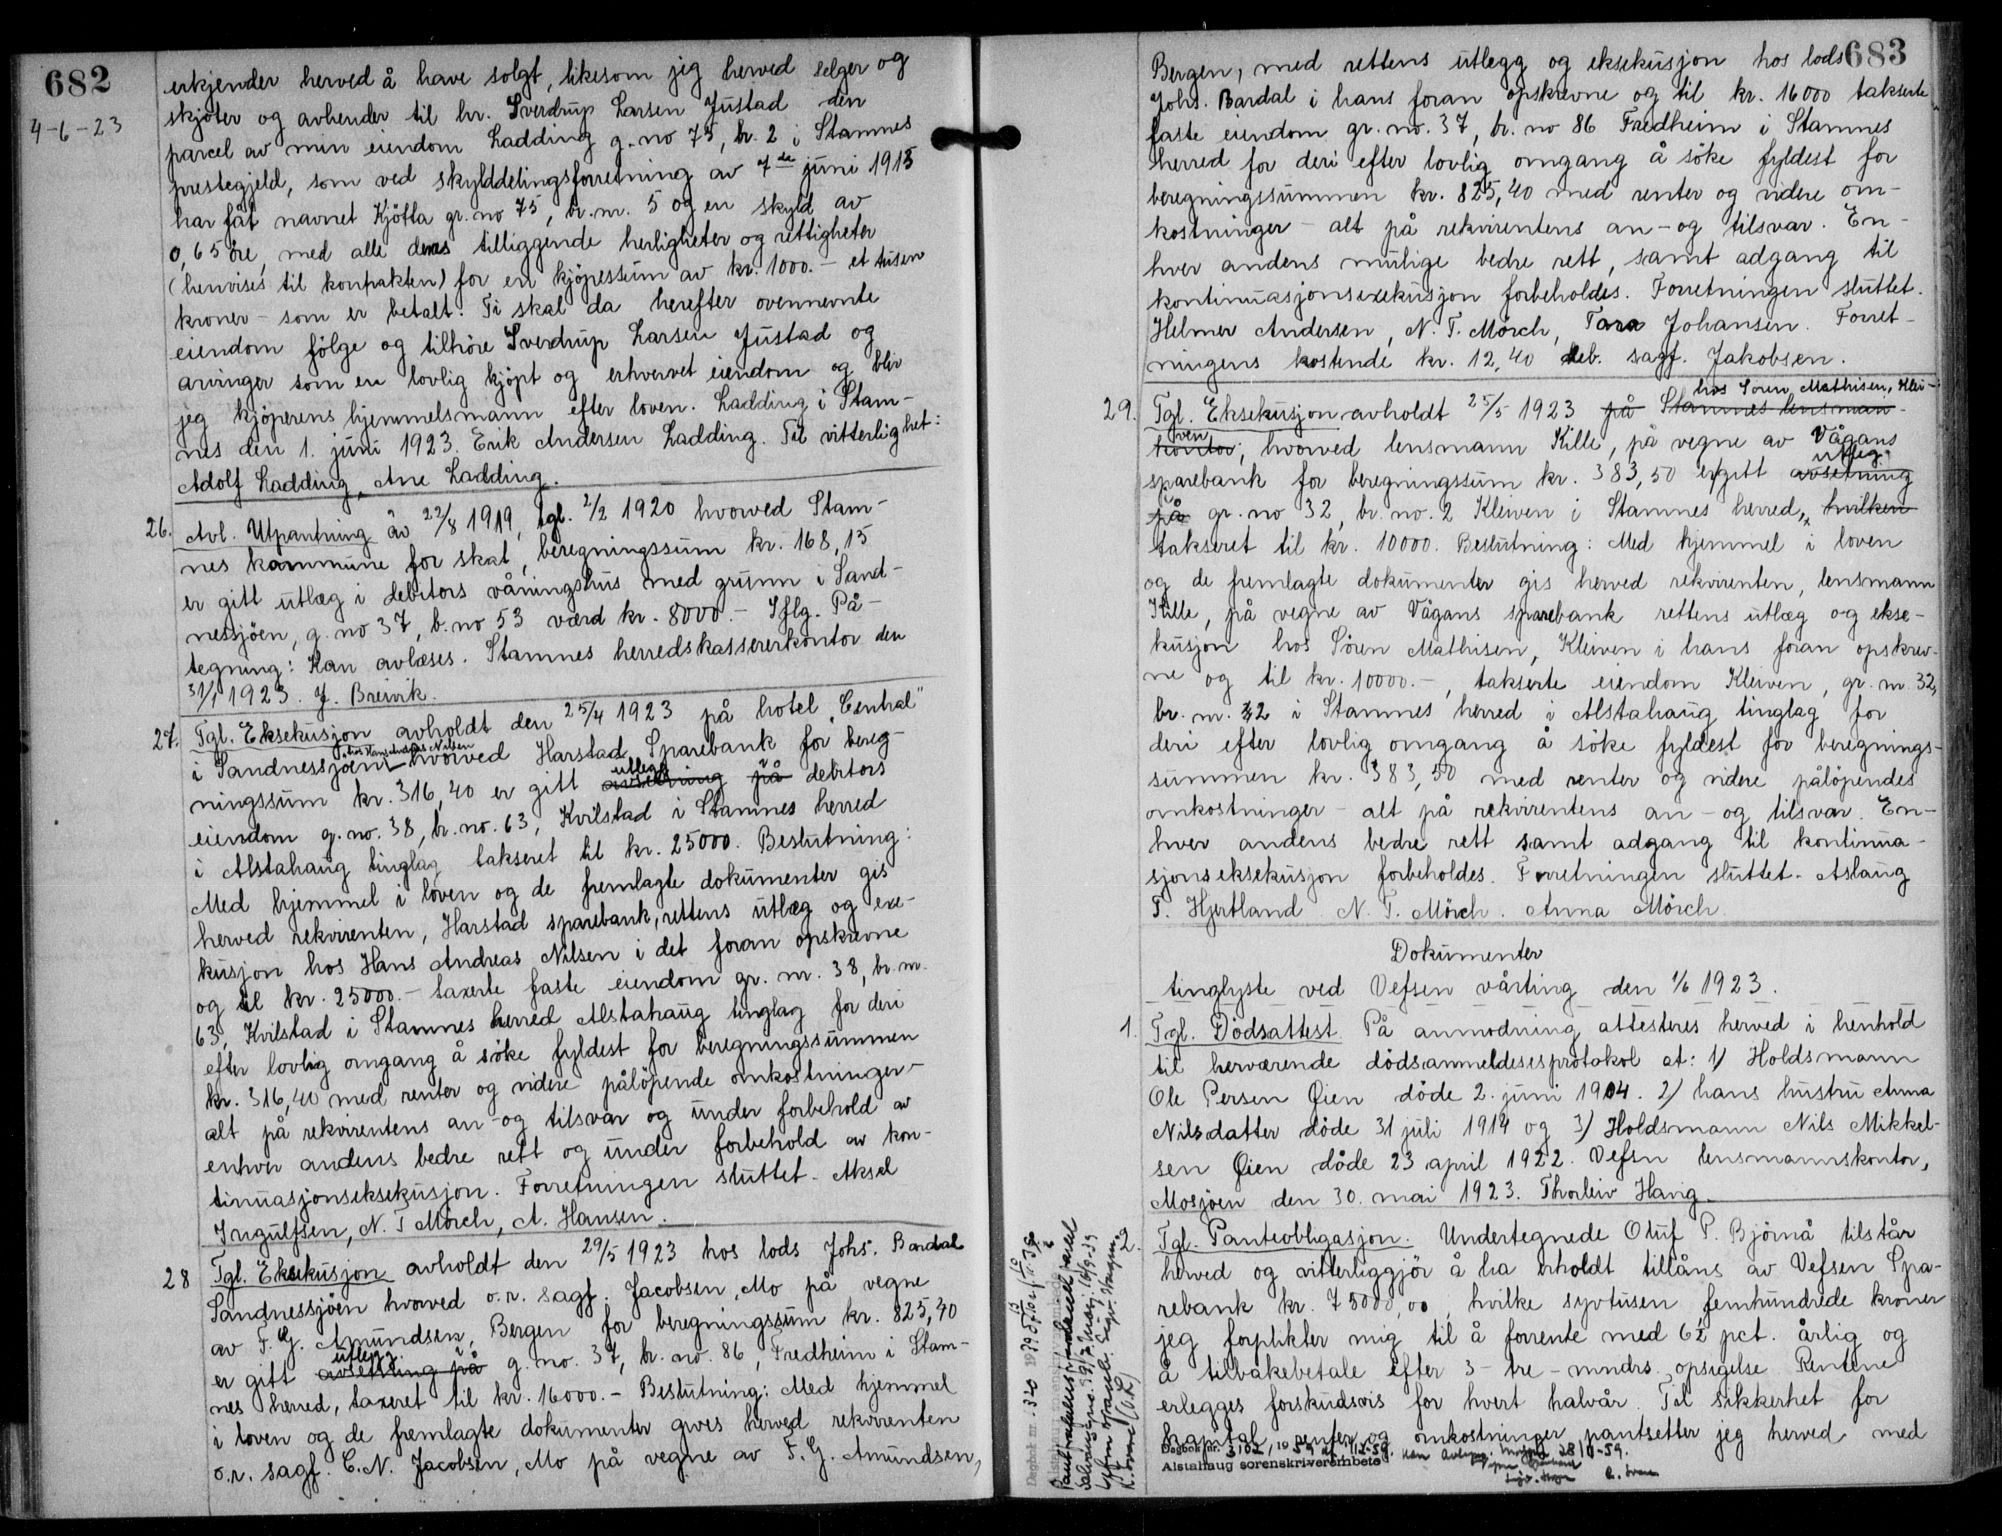 682
4-6-23
erkjender herved å have solgt, likesom jig herved selger og
skjöter og avhender til hr. Sverdrup Larsen Justad den
parcel av min eiendom Ladding g.no 75, br. 2 i Stamnes
prestegjeld, som ved skylddelingsforretning av 7de juni 1915
har fåt navnet Kjötta gr. no 75, br. nr. 5 og en skyld av
0,65 öre, med alle denes tilliggende herligheter og rettigheter
(henvises til kontrakten) for en kjöpessum av kr. 1000.- et tusen
kroner - som er betalt. Ti skal da herefter ovennevnte
eiendom fölge og tilhöre Sverdrup Larsen Justad og
arvinger som en lovlig kjöpt og erhvervet eiendom og blir
jeg kjöperens hjemmelsmann efter loven. Ladding i Stam-
nes den 1. juni 1923. Erik Andersen Ladding. Til vitterlighet:
Adolf Ladding, Ane Ladding.
26. Avl. Utpantning av 22/8 1919, tgl. 2/2 1920 hvorved Stam-
nes kommune for skat, beregningssum kr. 168,15
er gitt utlæg i debitors våningshus med grunn i Sand-
nessjöen, g. no 37, b. no 53 værd kr. 8000.- Iflg. På-
tegning: Kan avlæses. Stamnes herredskassererkontor den
31/1 1923. J. Breivik.
27. Tgl. Eksekusjon avholdt den 25/4 1923 på hotel "Central"
hos Hans Andreas Nilsen
i Sandnessjöen hvorved Harstad Sparebank for bereg-
utlegg
ningssum kr. 316,40 er gitt avsetning på debitors
eiendom g. no. 38, br. no. 63, Kvilstad i Stamnes herred
i Alstahaug tinglag takseret til kr. 25000. Beslutning:
Med hjemmel i loven og de fremlagte dokumenter gis
herved rekvirenten, Harstad sparebank, rettens utlæg og exe-
kusjon hos Hans Andreas Nilsen i det foran opskrevne
og til kr. 25000.- taxerte faste eiendom gr. nr. 38, br. nr.
63, Kvilstad i Stamnes herred Alstahaug tinglag for deri
efter lovlig omgang å söke fyldest for beregningssummen
kr. 316,40 med renter og videre pålöpende omkostninger -
alt på rekvirentens an- og tilsvar og under forbehold av
enhver andens bedre rett og under forbehold av kon-
tinuasjonseksekusjon. Forretningen sluttet. Aksel
Ingulfsen, N. T Mörch, A. Hansen.
28 Tgl. Eksekusjon avholdt den 29/5 1923 hos lods Johs. Bardal
Sandnessjöen hvorved o.r. sagf. Jacobsen, Mo på vegne
av F. G. Amundsen, Bergen for beregningssum kr. 825,40
utlegg
er gitt avsetning på g. no. 37, br. no. 86, Fredheim i Stam-
nes herred, taxeret til kr. 16000.- Beslutning: Med hjemmel
i loven og de fremlagte dokumenter gives herved rekvirenten
o.r. sagf. C. N. Jacobsen, Mo på vegne av F. G. Amundsen,
683
Bergen, med rettens utlegg og eksekusjon hos lods
Johs. Bardal i hans foran opskrevne og til kr. 16000 takserte
faste eiendom gr. no. 37, br. no 86 Fredheim i Stamnes
herred for deri efter lovlig omgang å söke fyldest for
beregningssummen kr. 825,40 med renter og videre om-
kostninger - alt på rekvirentens an- og tilsvar. En-
hver andens mulige bedre rett, samt adgang til
kontinuasjonsexekusjon forbeholdes. Forretningen sluttet.
Helmer Andersen, N. T. Mörch, Tora Johansen. Forret-
ningens kostende kr. 12,40 deb. sagf. Jakobsen.
hos Sören Mathisen, Klei-
29. Tgl. Eksekusjon avholdt 25/5 1923 på Stamnes lensman-
ven
kontor, hvorved lensmann Kille, på vegne av Vågans
utleg
sparebank for beregningssum kr. 383,50 er gitt avsetning
i
på gr. no 32, br. no. 2 Kleiven i Stamnes herred, hvilken
takseret til kr. 10000. Beslutning: Med hjemmel i loven
og de fremlagte dokumenter gis herved rekvirenten, lensmann
Kille, på vegne av Vågans sparebank rettens utlæg og ekse-
kusjon hos Sören Mathisen, Kleiven i hans foran opskrev-
ne og til kr. 10000.-, takserte eiendom Kleiven, gr. nr. 32,
br. nr. 2 i Stamnes herred i Alstahaug tinglag for
deri efter lovlig omgang å söke fyldest for beregnings-
summen kr. 383,50 med renter og videre pålöpendes
omkostninger - alt på rekvirentens an- og tilsvar. En-
hver andens bedre rett samt adgang til kontinua-
sjonseksekusjon forbeholdes. Forretningen sluttet. Aslaug
T. Hjertland N. T. Mörch. Anna Mörch.
Dokumenter
tinglyste ved Vefsen vårting den 1/6 1923.
1. Tgl. Dödsattest. På anmodning attesteres herved i henhold
til herværende dödsanmeldesesprotokol at: 1) Holdsmann
Ole Persen Öien döde 2. juni 1904. 2) hans hustru Anna
Nilsdatter döde 31 juli 1914 og 3) Holdsmann Nils Mikkel-
sen Öien döde 23 april 1922. Vefsn lensmannskontor,
Mosjöen den 30. mai 1923. Thorleiv Haug.
2. Tgl. Panteobligasjon. Undertegnede Oluf P. Björnå tilstår
herved og vitterliggjör å ha erholdt tillåns av Vefsen Spa-
rebank kr. 7500,00, hvilke syvtusen femhundrede kroner
jeg forplikter mig til å forrente med 6½ pct. årlig og
å tilbakebetale efter 3 - tre - mndrs. opsigelse. Rentene
erlegges forskudsvis for hvert halvår. Til sikkerhet for
kapital, renter og omkostninger pantsetter jeg herved med
Dagbok nr. 3102, 1959
Alstahaug sorenskriverembete
Dagbok nr.